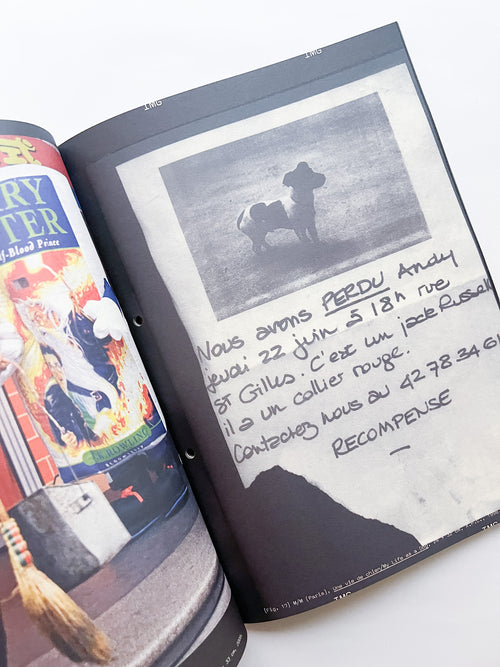 RY
TER
f-Blood Prince
J.K. ROWLING
BLOOMSBURY
IMG
IMG
Nous avons PERDU Andy
jeudi 22 juin à 18h rue
St Gilles. C'est un jack Russell
il a un collier rouge.
Contactez nous au 42 78 34 61
RECOMPENSE
[Fig. 17] M/M (Paris), Une vie de chien/My Life as a Dog,
IMG
IMG